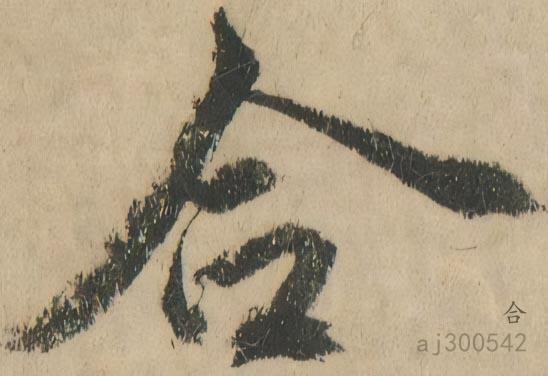 合
合
aj300542